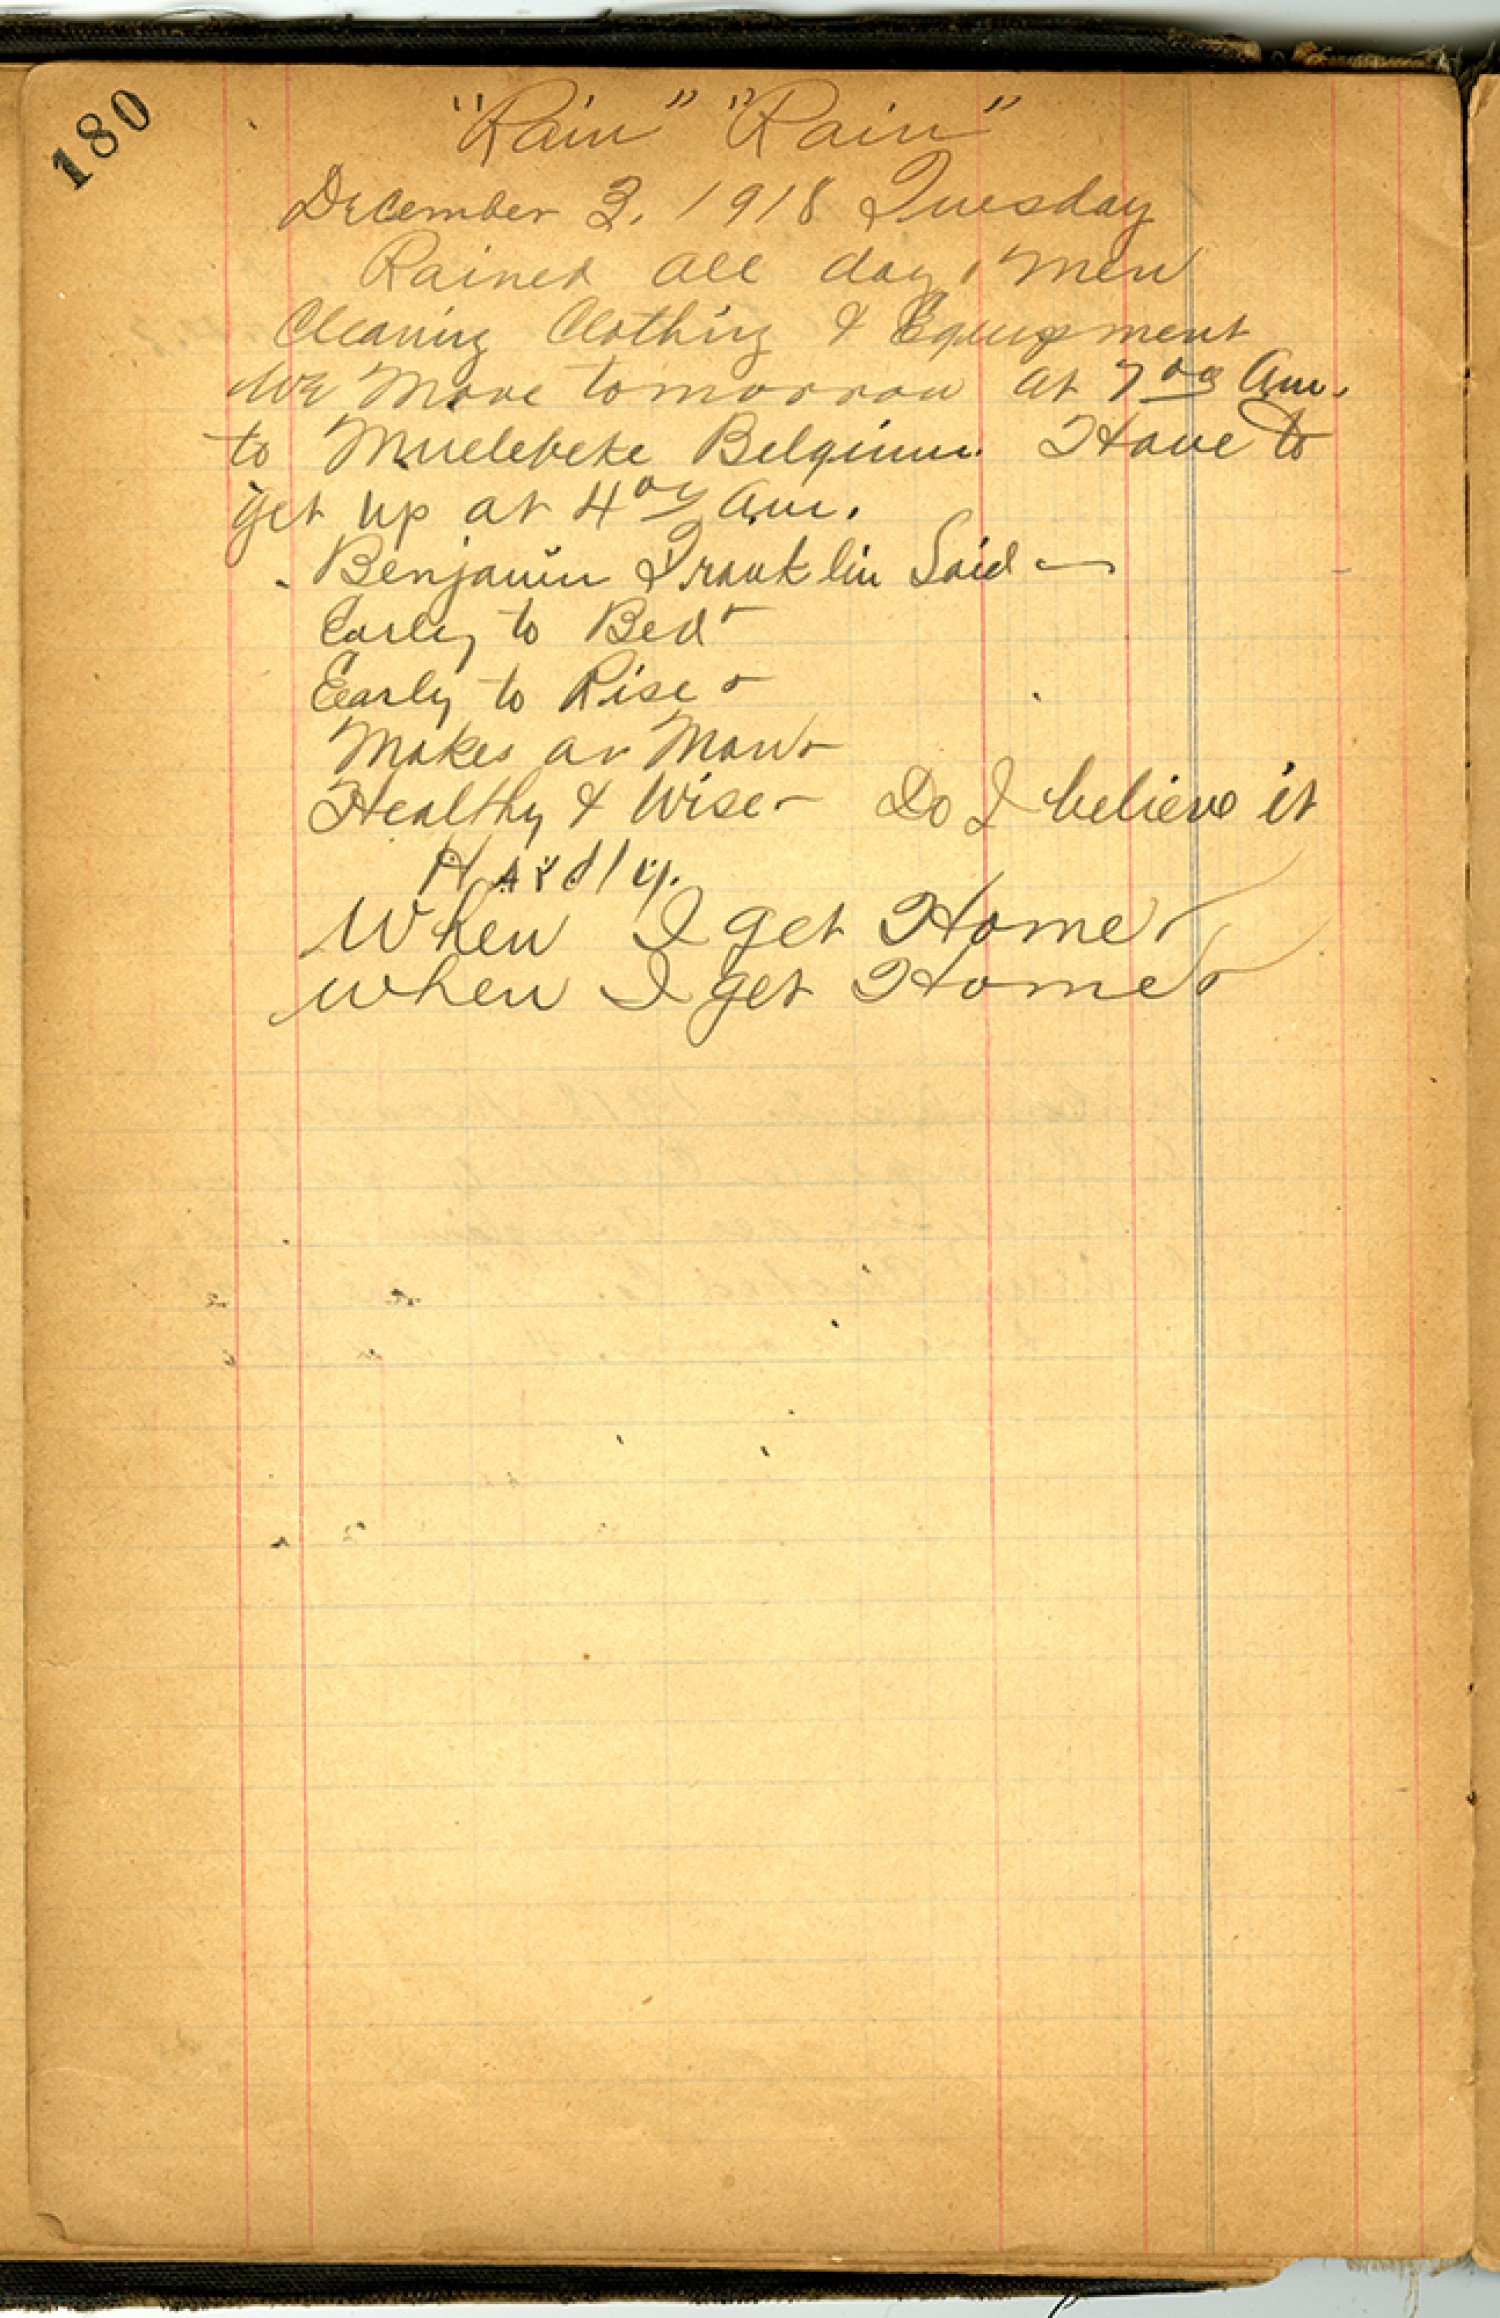 180
"Rain" "Rain"
December 3, 1918 Tuesday
Rained all day, Men
Cleaning Clothing & Equipment
We Move tomorrow at 7 00 Am.
to Muelebeke Belgium. Have to
get up at 4 00 Am.
Benjamin Franklin Said —
Early to Bed
Early to Rise
Makes a Man
Healthy & Wise - Do I believe it
Hardly.
When I get Home
when I get Home